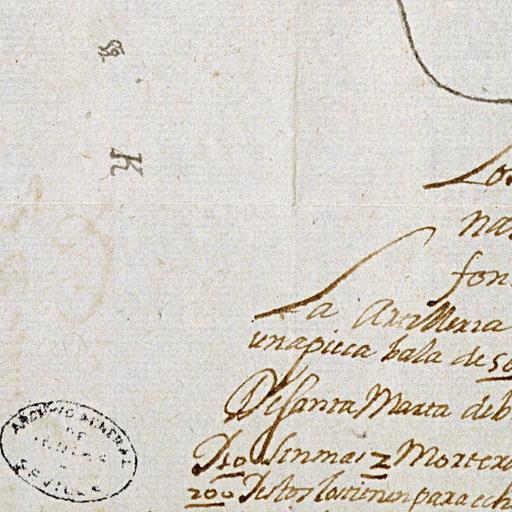 K
Los
na
fon
La Artilleria
una pieça bala de 50
De Santa Marta de b
D 10 sin mas 2 Mortero
200 Destos los tienen para ech
ARCHIVO GENERAL
DE
INDIAS
SEVILLA